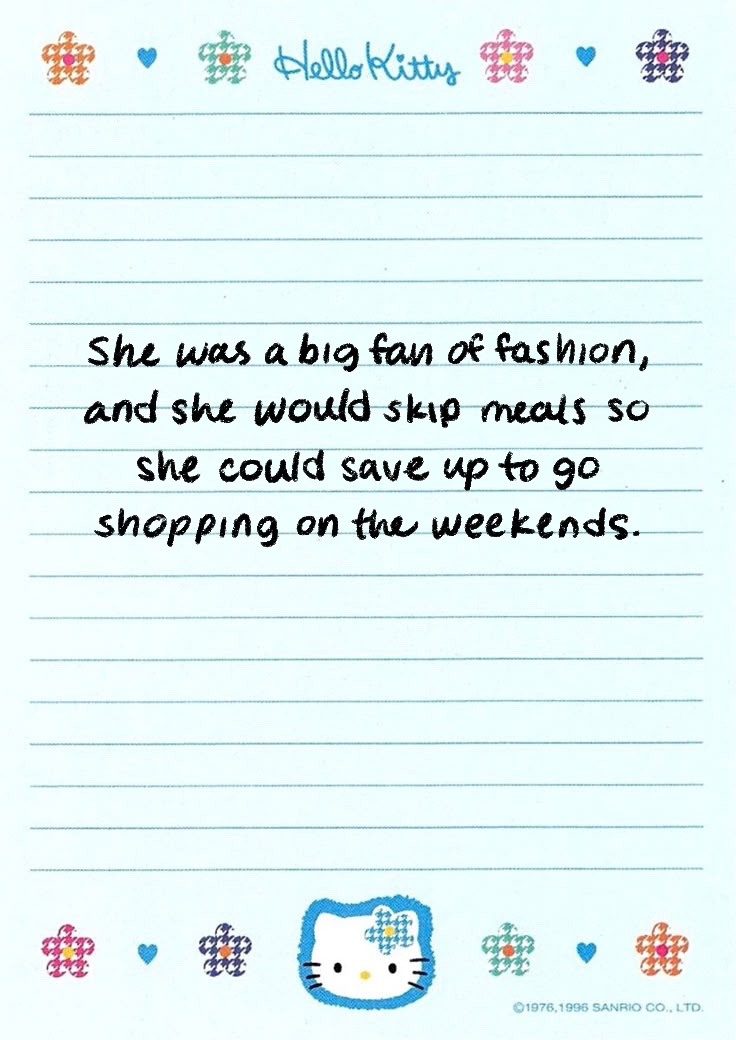 Hello Kitty
She was a big fan of fashion,
and she would skip meals so
she could save up to go
shopping on the weekends.
©1976,1996 SANRIO CO., LTD.